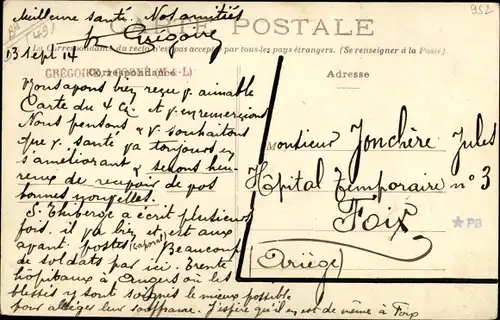 Meilleure santé. Nos amitiés
p Grégoire
952
CARTE POSTALE
La Correspondance du recto n'est pas acceptée par tous les pays étrangers. (Se renseigner à la Poste)
13 Sept 14
GRÉGOIRE
Correspondance
Adresse
Nous avons bien reçu v. aimable
Carte du 4 Ct et v. en remercions
Nous pensons & v. souhaitons
que v. santé va toujours en
s'améliorant & serons heu-
reux de recevoir de vos
bonnes nouvelles.
S. Thiberge a écrit plusieurs
fois. il va bien et est aux
avant postes (caporal) Beaucoup
de soldats par ici. Trente
hôpitaux à Angers où les
blessés y sont soignés le mieux possible
pour alléger leur souffrance. J'espère qu'il en est de même à Foix
Monsieur Jonchère Jules
Hôpital temporaire n° 3
Foix
(Ariège)
PB